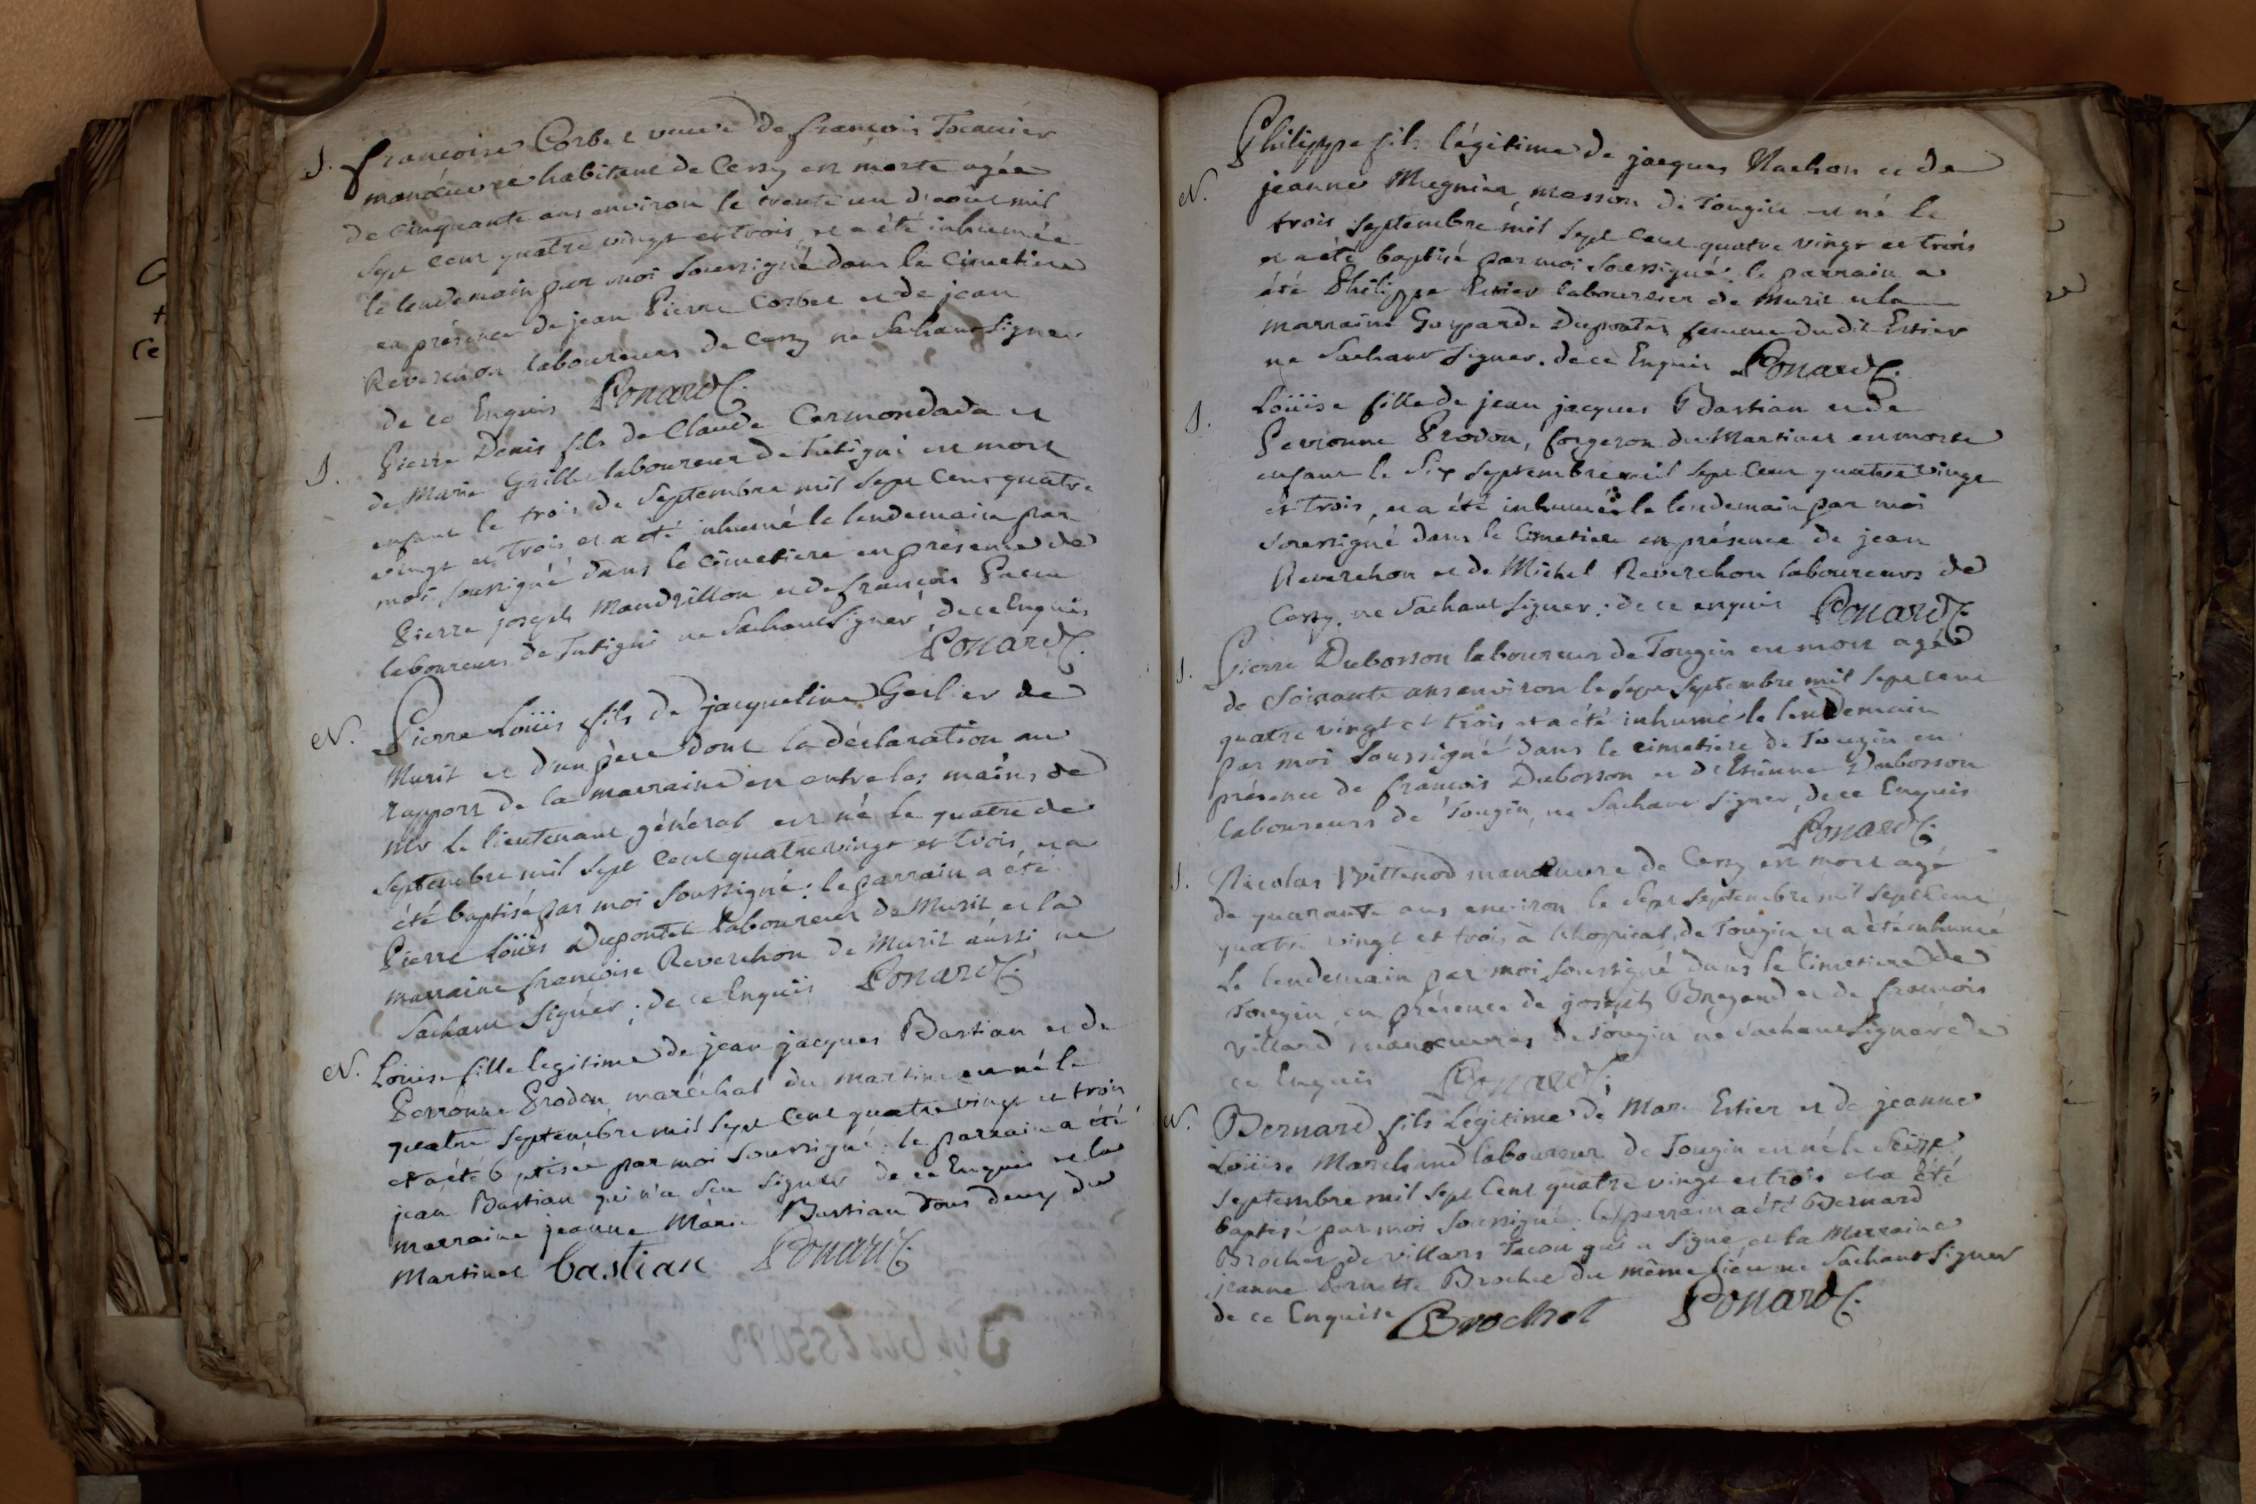 S. françoise Corbet veuve de françois Tocanier
manoeuvre habitant de Cessy est morte agée
de cinquante ans environ le trente un d'aout mil
sept cent quatre vingt et trois, et a été inhumée
le lendemain par moi soussigné dans le cimetiere
en présence de jean Pierre Corbet et de jean
Reverchon laboureurs de Cessy ne sachant signer
de ce Enquis Ponard C.
S. Pierre Denis fils de Claude Cormondada et
de Marie Grillet laboureur de Tutigni est mort
enfant le trois de septembre mil sept cent quatre
vingt et trois et a été inhumé le lendemain par
moi soussigné dans le cimetiere en présence de
Pierre joseph Mandrillon et de françois
laboureurs de Tutigni ne sachant signer, de ce Enquis
Ponard C.
N. Pierre Loüis fils de jacqueline Gerlier de
Murit et d'un père dont la déclaration au
rapport de la marraine est entre les mains de
Mr Le lieutenant général est né le quatre de
septembre mil sept cent quatre vingt et trois, et a
été baptisé par moi soussigné: le parrain a été
Pierre Loüis Dupontet laboureur de Murit et la
marraine françoise Reverchon de Murit aussi ne
sachant signer; de ce Enquis Ponard C.
N. Loüise fille legitime de jean jacques Bastian et de
Perronne Prodon maréchal du martinet est né le
quatre septembre mil sept cent quatre vingt et trois
et a été baptisée par moi soussigné: le parrain a été
jean Bastian qui n'a seu signer de ce Enquis et la
marraine jeanne Marie Bastian tous deux du
Martinet bastian Ponard C.
Philippe fils légitime de jacques Nachon et de
N. jeanne Megnier, masson de Tougin est né le
trois septembre mil sept cent quatre vingt et trois
et a été baptisé par moi soussigné: le parrain a
été Philippe Estier laboureur de Murit et la
marraine Gasparde Dupontet femme dudit Estier
ne sachant signer. de ce Enquis Ponard C.
S. Loüise fille de jean jacques Bastian et de
Perronne Prodon, forgeron du Martinet est morte
enfant le six septembre mil sept cent quatre vingt
et trois, et a été inhumée le lendemain par moi
soussigné dans le cimetiere en présence de jean
Reverchon et de Michel Reverchon laboureurs de
Cessy, ne sachant signer: de ce enquis Ponard C.
S. Pierre Dubosson laboureur de Tougin est mort agé
de soixante ans environ le sept septembre mil sept cent
quatre vingt et trois et a été inhumé le lendemain
par moi soussigné dans le cimetiere de Tougin en
présence de françois Dubosson et d'Etienne Dubosson
laboureurs de Tougin, ne sachant signer, de ce Enquis
Ponard C.
S. Nicolas Vuittenod manoeuvre de Cessy est mort agé
de quarante ans environ le sept septembre mil sept cent
quatre vingt et trois à l'hopital de Tougin et a été inhumé
le lendemain par moi soussigné dans le cimetiere de
Tougin, en présence de joseph Bregand et de françois
Villard manoeuvres de Tougin ne sachant signer de
ce Enquis Ponard C.
N. Bernard fils Légitime de Marc Estier et de jeanne
Loüise Marchand laboureur de Tougin est né le seize
septembre mil sept cent quatre vingt et trois et a été
baptisé par moi soussigné: le parrain a été Bernard
Brochet de Villars Tacon qui a signé et la Marraine
jeanne Pernette Brochet du même lieu ne sachant signer
de ce Enquise Brochet Ponard C.